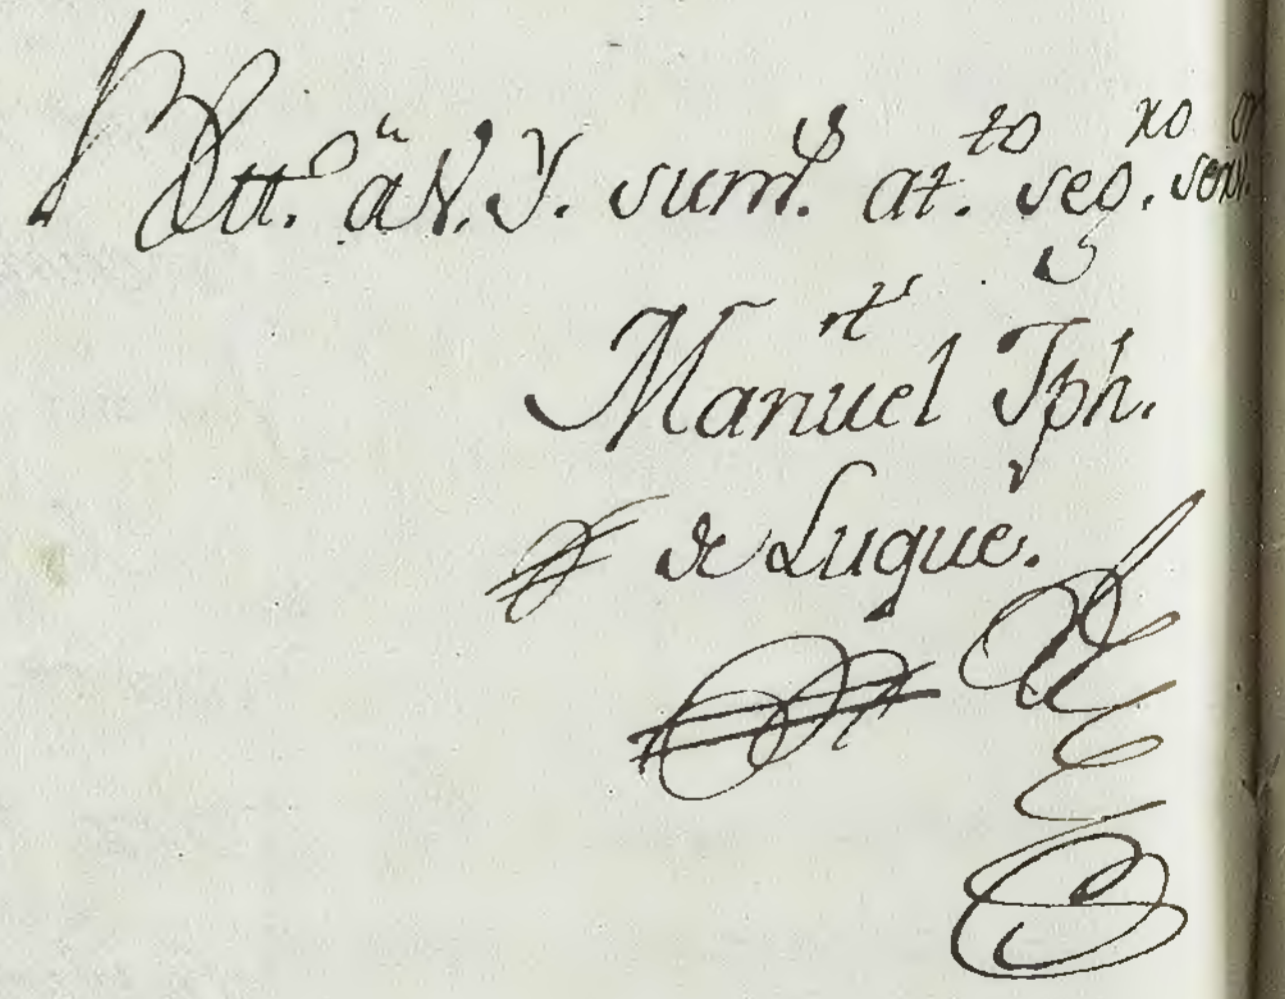 a V. S. sum.^s at.^to seg.^ro serv.^or
Manuel Jph.
de Luque.